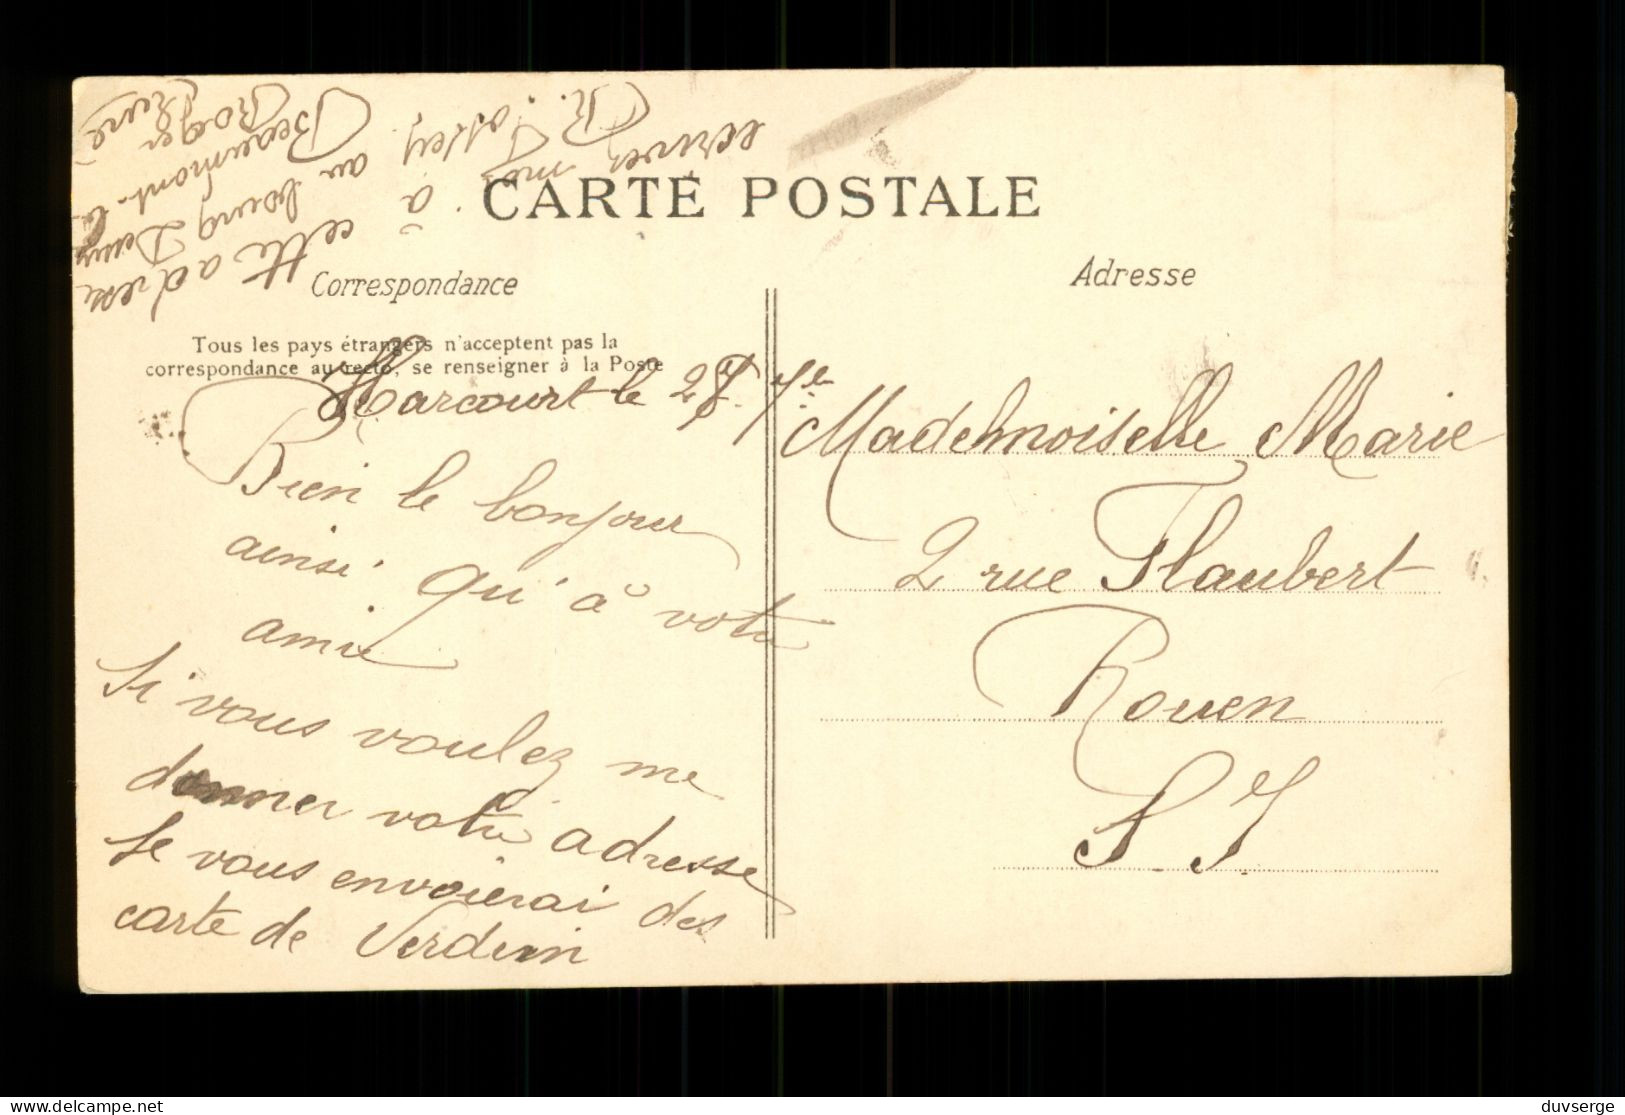 CARTE POSTALE
Correspondance
Adresse
Tous les pays étrangers n'acceptent pas la
correspondance au recto, se renseigner à la Poste
Harcourt le
Bien le bonjour
ainsi qu'à votre
amie
Si vous voulez me
donner votre adresse
Je vous envoierai des
carte de Verdun
Mademoiselle Marie
2 rue Flaubert
Rouen
S. I.
écrivez moi
à cette adresse
au bourg
Beaumont-le
Roger
Eure
delcampe.net
duvserge